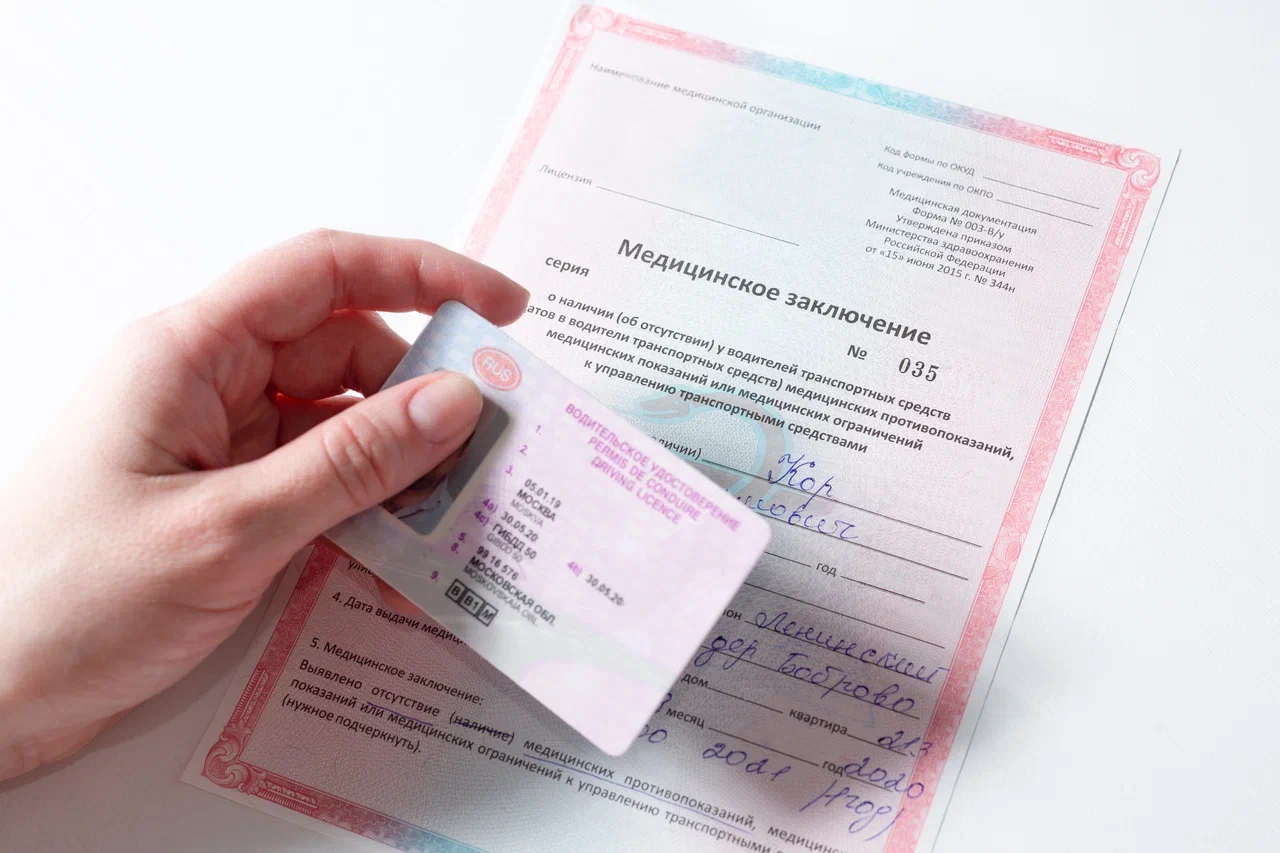 Наименование медицинской организации
Код формы по ОКУД
Код учреждения по ОКПО
Лицензия
Медицинская документация
Форма № 003-В/у
Утверждена приказом
Министерства здравоохранения
Российской Федерации
от «15» июня 2015 г. № 344н
Медицинское заключение
серия
№ 035
о наличии (об отсутствии) у водителей транспортных средств
атов в водители транспортных средств) медицинских противопоказаний,
медицинских показаний или медицинских ограничений
к управлению транспортными средствами
личии) Кор
ович
год
он Ленинский
дер Боброво
дом
квартира 213
месяц
год 2020
2021
(1 год)
4. Дата выдачи медиц
5. Медицинское заключение:
Выявлено отсутствие (наличие) медицинских противопоказаний, медицинс
показаний или медицинских ограничений к управлению транспортными
(нужное подчеркнуть).
RUS
ВОДИТЕЛЬСКОЕ УДОСТОВЕРЕНИЕ
PERMIS DE CONDUIRE
DRIVING LICENCE
1.
2.
3.
05.01.19
МОСКВА
MOSKVA
4a) 30.05.20
4b) 30.05.20
4c) ГИБДД 50
GIBDD 50
5. 99 16 576
8. МОСКОВСКАЯ ОБЛ.
MOSKOVSKAIA OBL.
9. B B1 M